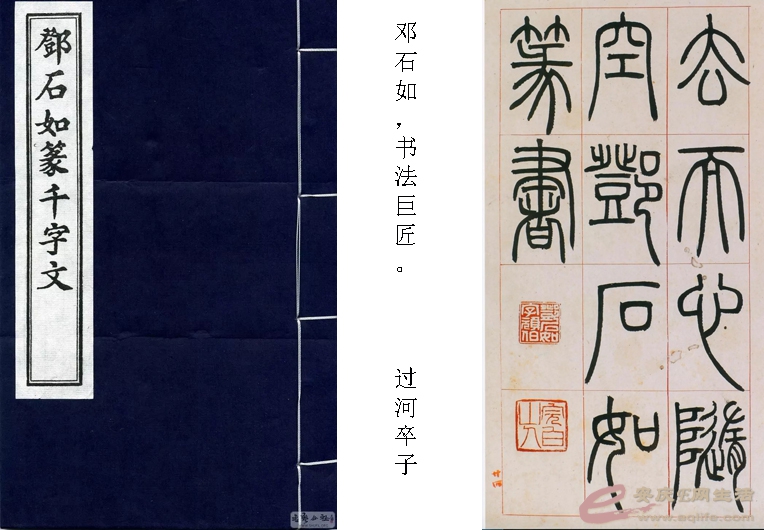 鄧石如篆千字文
邓石如，书法巨匠。
过河卒子
去而心隨
空鄧石如
篆書
鄧石如字頑伯
完白山人
安庆E网生活
www.aqlife.com